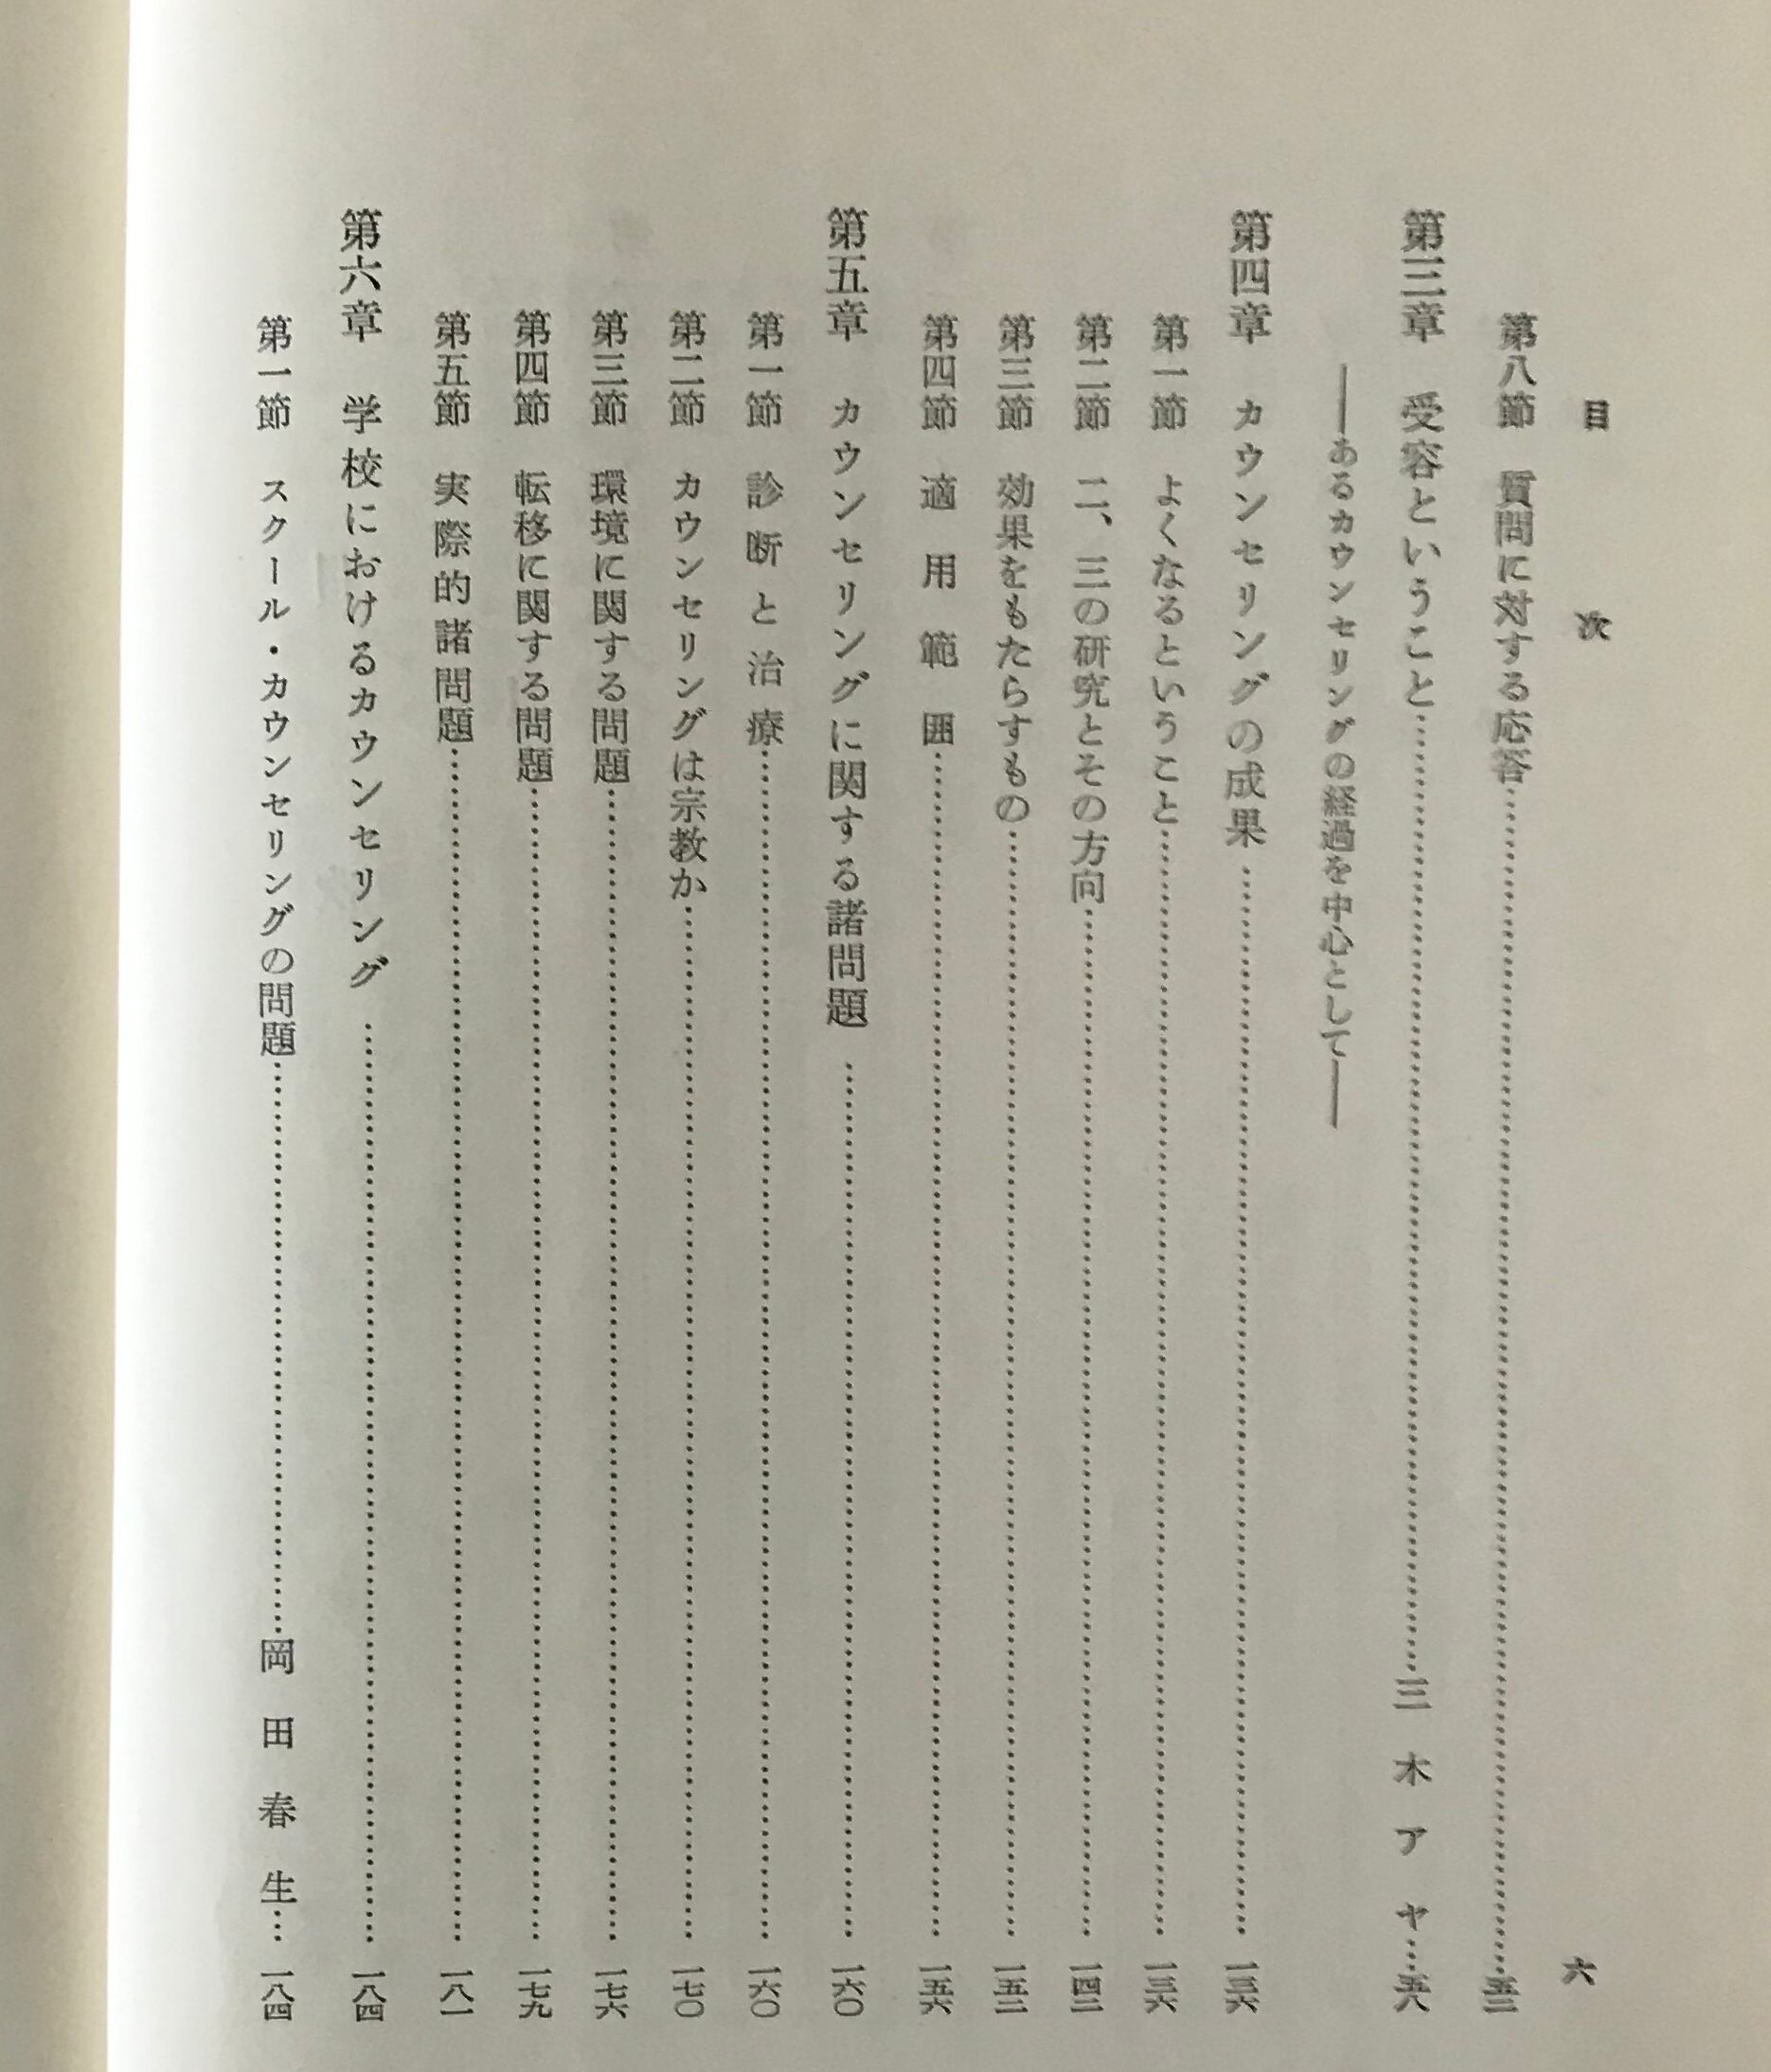 目次
六
第八節 質問に対する応答……五二
第三章 受容ということ……三木アヤ…五八
――あるカウンセリングの経過を中心として――
第四章 カウンセリングの成果……一三六
第一節 よくなるということ……一三六
第二節 二、三の研究とその方向……一四二
第三節 効果をもたらすもの……一五二
第四節 適用範囲……一五六
第五章 カウンセリングに関する諸問題……一六〇
第一節 診断と治療……一六〇
第二節 カウンセリングは宗教か……一七〇
第三節 環境に関する問題……一七六
第四節 転移に関する問題……一七九
第五節 実際的諸問題……一八一
第六章 学校におけるカウンセリング……一八四
第一節 スクール・カウンセリングの問題……岡田春生…一八四